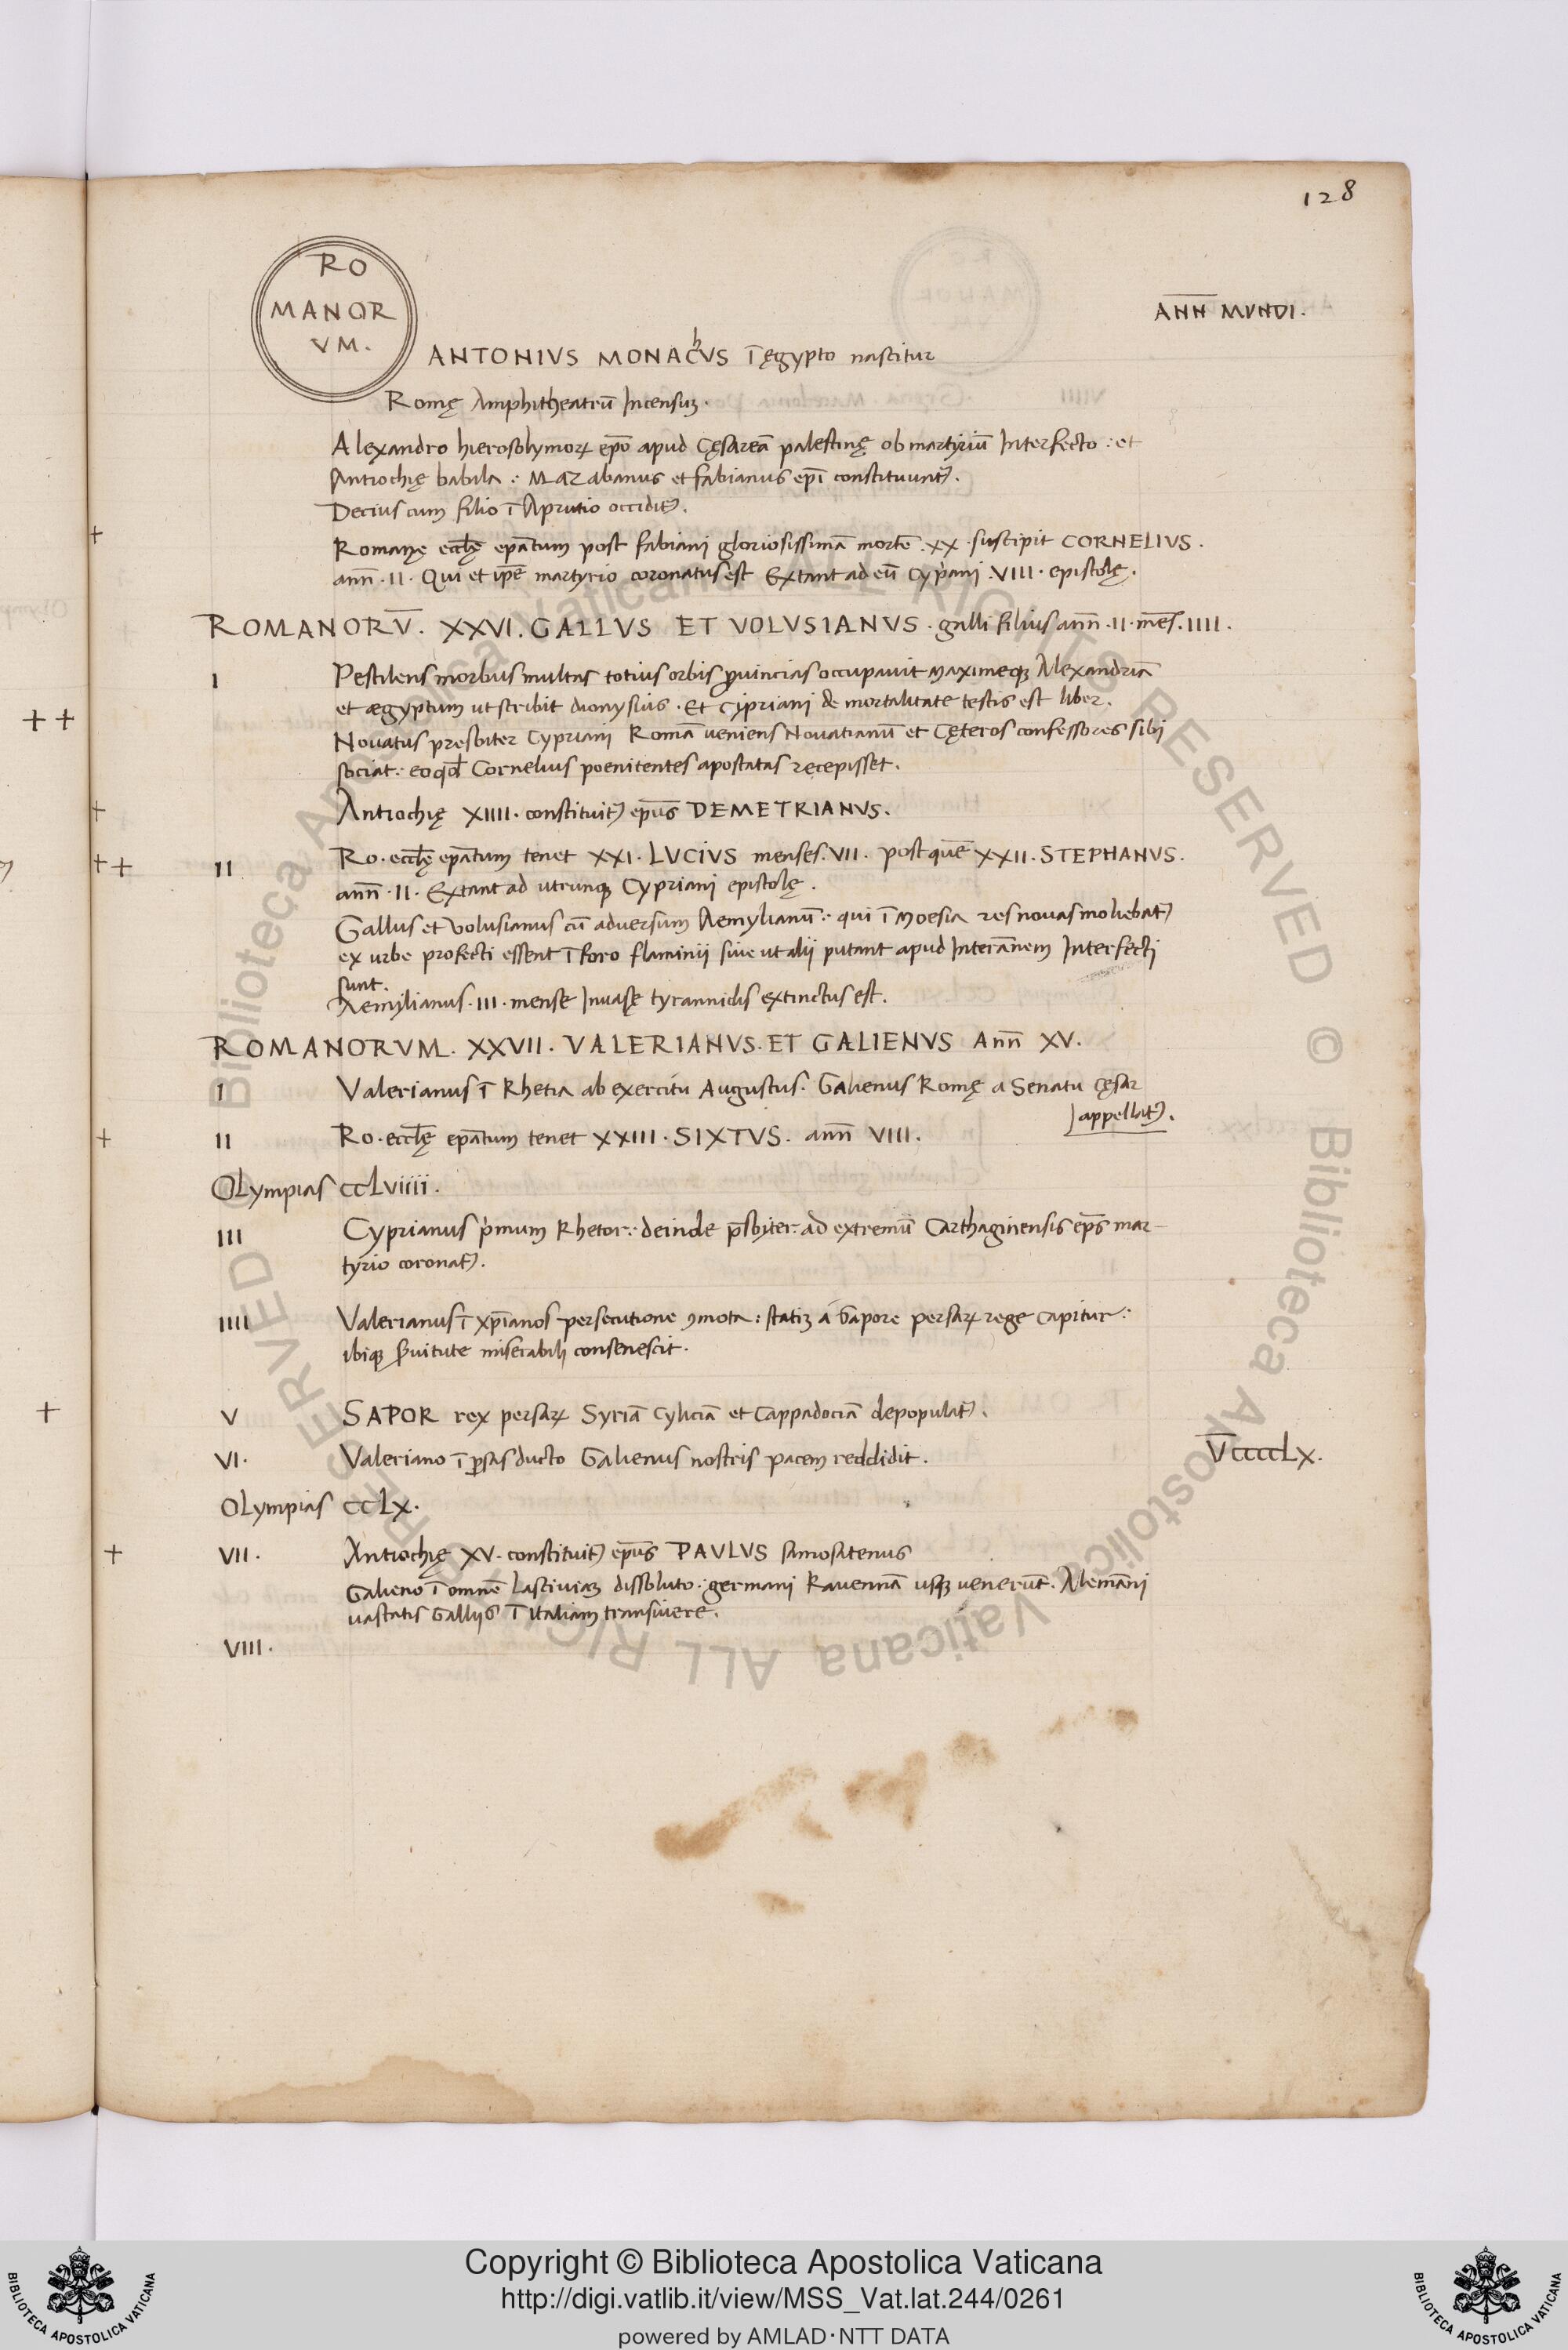 128
RO
MANOR
VM.
AÑÑ MVNDI.
ANTONIVS MONAChVS ī ęgypto nascitur
Romę Amphitheatrū Incensuꝫ.
Alexandro hierosolymoꝝ ep̄o apud Cęsareā palestinę ob martyriū Interfecto : et
Antiochię babila : Mazabanus et fabianus ep̄i constituunt᷑.
Decius cum filio ī Aprutio occidit᷑.
+ Romanę eccl̄ę ep̄atum post fabiani gloriosissimā mortē .XX. suscipit CORNELIVS.
ann̄ .II. Qui et ip̄e martyrio coronatus est Extant ad eū Cyp̄ani .VIII. epistolę.
ROMANORV̄. XXVI. GALLVS ET VOLVSIANVS . galli filius ann̄ .II. mēs. IIII.
I Pestilens morbus multas totius orbis ꝓuincias occupauit Maximeqꝫ Alexandriā
et ægyptum ut scribit dionysius . Et Cypriani de mortalitate testis est liber.
++ Nouatus presbiter Cypriani Romā ueniens Nouatianū et Cęteros confessores sibi
sociat : eo qd̄ Cornelius poenitentes apostatas recepisset.
+ Antiochię XIIII. constituit᷑ ep̄us DEMETRIANVS.
++ II Ro. eccl̄ę ep̄atum tenet XXI. LVCIVS menses. VII. post quē XXII. STEPHANVS.
ann̄ .II. Extant ad utrunqꝫ Cypriani epistolę.
Gallus et Volusianus cū aduersum Aemylianū : qui ī Moesia res nouas moliebat᷑
ex urbe profecti essent ī foro flaminii siue ut alii putant apud Interānem Interfecti
sunt.
Aemylianus .III. mense Inuasę tyrannidis extinctus est.
ROMANORVM. XXVII. VALERIANVS. ET GALIENVS Ann̄ XV.
I Valerianus ī Rhetia ab exercitu Augustus. Galienus Romę a Senatu Cęsar
appellat᷑.
+ II Ro. eccl̄ę ep̄atum tenet XXIII. SIXTVS. ann̄ VIII.
OLympias CCLVIIII.
III Cyprianus p̄mum Rhetor : deinde p̄sbiter : ad extremū Carthaginensis ep̄s mar-
tyrio coronat᷑.
IIII Valerianus ī xp̄ianos persecutione ꝯmota : statiꝫ a Sapore persaꝝ rege Capitur :
ibiqꝫ ẜuitute miserabili consenescit.
+ V SAPOR rex persaꝝ Syriā Cyliciā et Cappadociā depopulat᷑.
VI. Valeriano ī ꝑsas ducto Galienus nostris pacem reddidit. V̄CCCCLX.
OLympias CCLX.
+ VII. Antiochię XV. constituit᷑ ep̄us PAVLVS samosatenus
Galieno ī omnē Lasciuiaꝫ dissoluto : germani Rauennā usqꝫ uenerūt. Alemāni
uastatis Galliis ī Italiam transiuere.
VIII.
Copyright © Biblioteca Apostolica Vaticana
http://digi.vatlib.it/view/MSS_Vat.lat.244/0261
powered by AMLAD·NTT DATA
BIBLIOTECA APOSTOLICA VATICANA
BIBLIOTECA APOSTOLICA VATICANA
© Biblioteca Apostolica Vaticana ALL RIGHTS RESERVED
© Biblioteca Apostolica Vaticana ALL RIGHTS RESERVED